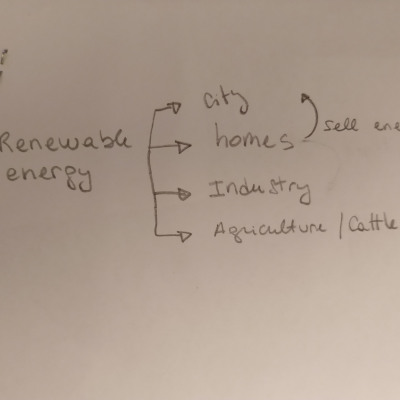 city
Renewable homes sell
energy
Industry
Agriculture / Cattle